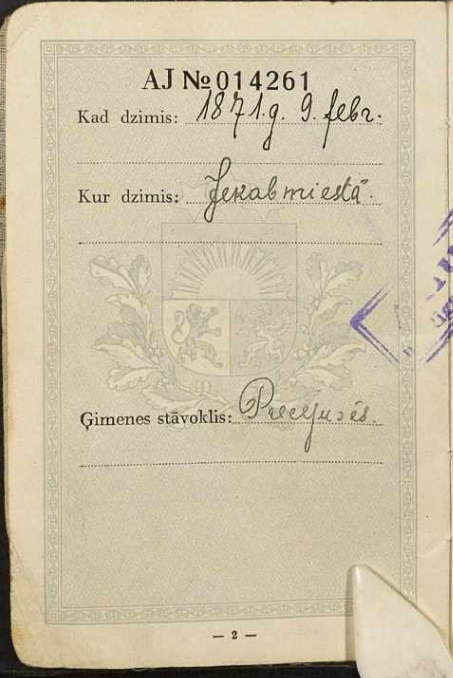 AJ № 014261
Kad dzimis: 1871.g. 9. febr.
Kur dzimis: Jekabmiestā.
Ģimenes stāvoklis: Precējusēs.
— 2 —